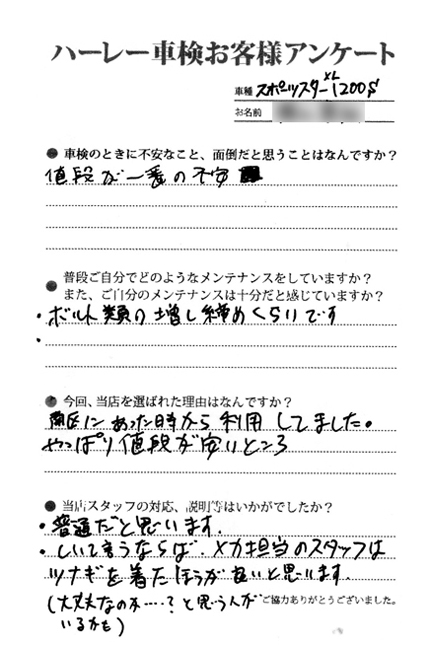 ハーレー車検お客様アンケート
車種 スポーツスターXL1200S
お名前
●車検のときに不安なこと、面倒だと思うことはなんですか?
値段が一番の不安
●普段ご自分でどのようなメンテナンスをしていますか?
また、ご自分のメンテナンスは十分だと感じていますか?
・ボルト類の増し締めくらいです
・
●今回、当店を選ばれた理由はなんですか?
南区にあった時から利用してました。
やっぱり値段が安いところ
●当店スタッフの対応、説明等はいかがでしたか?
・普通だと思います.
・しいて言うならば.メカ担当のスタッフは
ツナギを着たほうが良いと思います.
(大丈夫なのか....?と思う人が
いるかも)
ご協力ありがとうございました。